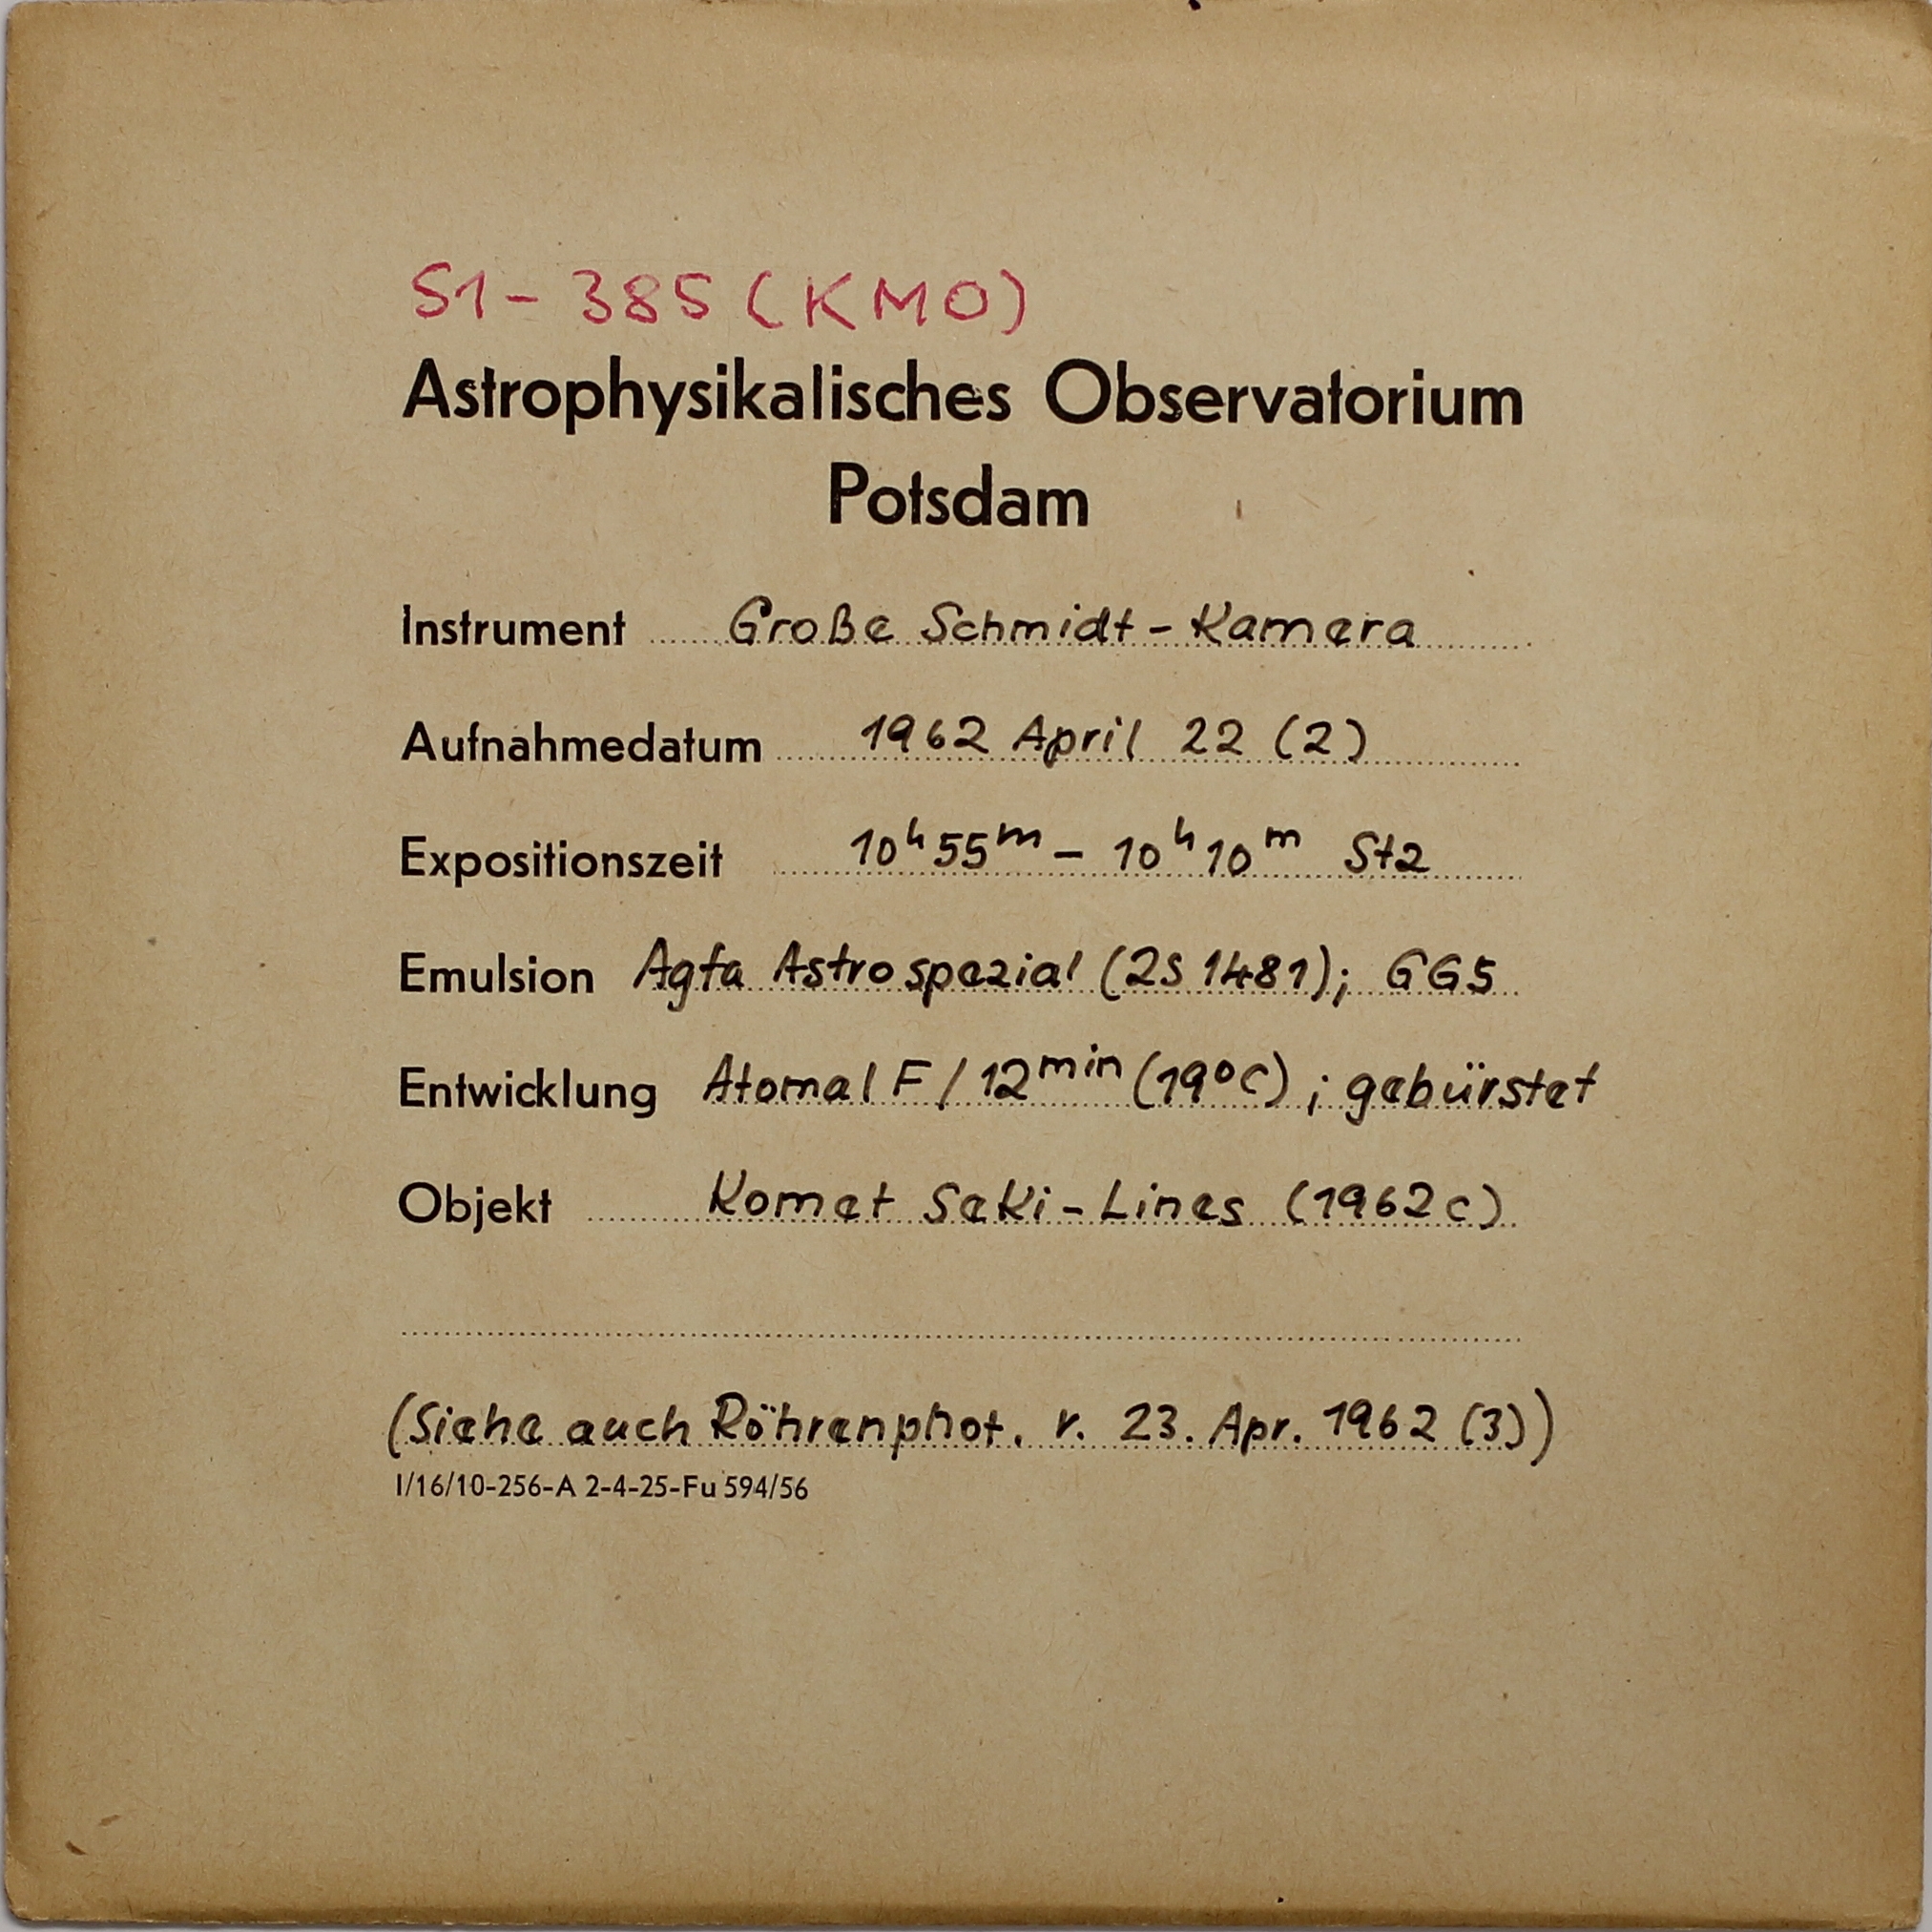 S1-385 (KMO)
Astrophysikalisches Observatorium
Potsdam
Instrument Große Schmidt-Kamera
Aufnahmedatum 1962 April 22 (2)
Expositionszeit 10h 55m - 10h 10m Stz
Emulsion Agfa Astrospezial (2S 1481); GG5
Entwicklung Atomal F / 12min (19°C); gebürstet
Objekt Komet Seki-Lines (1962c)
(Siehe auch Röhrenphot. v. 23. Apr. 1962 (3))
I/16/10-256-A 2-4-25-Fu 594/56